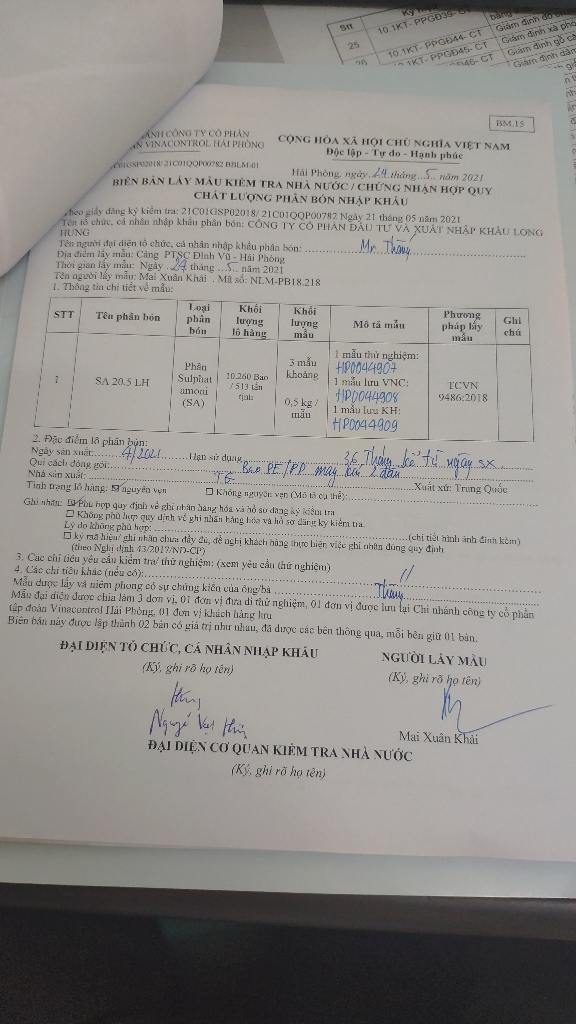 Stt
25
10.1KT- PPGĐ44- CT
10.1KT- PPGĐ45- CT
BM.15
CÔNG TY CỔ PHẦN
VINACONTROL HẢI PHÒNG
CỘNG HÒA XÃ HỘI CHỦ NGHĨA VIỆT NAM
Độc lập - Tự do - Hạnh phúc
21C01GSP02018/ 21C01QQP00782 BBLM-01
Hải Phòng, ngày 29 tháng 5 năm 2021
BIÊN BẢN LẤY MẪU KIỂM TRA NHÀ NƯỚC / CHỨNG NHẬN HỢP QUY
CHẤT LƯỢNG PHÂN BÓN NHẬP KHẨU
Theo giấy đăng ký kiểm tra: 21C01GSP02018/ 21C01QQP00782 Ngày 21 tháng 05 năm 2021
Tên tổ chức, cá nhân nhập khẩu phân bón: CÔNG TY CỔ PHẦN ĐẦU TƯ VÀ XUẤT NHẬP KHẨU LONG
HƯNG
Tên người đại diện tổ chức, cá nhân nhập khẩu phân bón: Mr. Thắng
Địa điểm lấy mẫu: Cảng PTSC Đình Vũ - Hải Phòng
Thời gian lấy mẫu: Ngày 29 tháng 5 năm 2021
Tên người lấy mẫu: Mai Xuân Khải . Mã số: NLM-PB18.218
1. Thông tin chi tiết về mẫu:
STT Tên phân bón Loại phân bón Khối lượng lô hàng Khối lượng mẫu Mô tả mẫu Phương pháp lấy mẫu Ghi chú
1 SA 20.5 LH
Phân
Sulphat
amoni
(SA)
10.260 Bao
/ 513 tấn
tịnh
3 mẫu
khoảng
0,5 kg /
mẫu
1 mẫu thử nghiệm:
HP0044907
1 mẫu lưu VNC:
HP0044908
1 mẫu lưu KH:
HP0044909
TCVN
9486:2018
2. Đặc điểm lô phân bón:
Ngày sản xuất: 4/2021 Hạn sử dụng 36 Tháng kể từ ngày sx
Qui cách đóng gói: Bao PE/PP may kín 2 đầu
Nhà sản xuất: Xuất xứ: Trung Quốc
Tình trạng lô hàng: ☑ nguyên vẹn ☐ Không nguyên vẹn (Mô tả cụ thể):
Ghi nhãn: ☑ Phù hợp quy định về ghi nhãn hàng hóa và hồ sơ đăng ký kiểm tra
☐ Không phù hợp quy định về ghi nhãn hàng hóa và hồ sơ đăng ký kiểm tra.
Lý do không phù hợp: (chi tiết hình ảnh đính kèm)
☐ ký mã hiệu/ ghi nhãn chưa đầy đủ, đề nghị khách hàng thực hiện việc ghi nhãn đúng quy định
(theo Nghị định 43/2017/NĐ-CP)
3. Các chỉ tiêu yêu cầu kiểm tra/ thử nghiệm: (xem yêu cầu thử nghiệm)
4. Các chỉ tiêu khác (nếu có): //
Mẫu được lấy và niêm phong có sự chứng kiến của ông/bà Thắng
Mẫu đại diện được chia làm 3 đơn vị, 01 đơn vị đưa đi thử nghiệm, 01 đơn vị được lưu tại Chi nhánh công ty cổ phần
tập đoàn Vinacontrol Hải Phòng, 01 đơn vị khách hàng lưu
Biên bản này được lập thành 02 bản có giá trị như nhau, đã được các bên thông qua, mỗi bên giữ 01 bản.
ĐẠI DIỆN TỔ CHỨC, CÁ NHÂN NHẬP KHẨU NGƯỜI LẤY MẪU
(Ký, ghi rõ họ tên) (Ký, ghi rõ họ tên)
Mai Xuân Khải
ĐẠI DIỆN CƠ QUAN KIỂM TRA NHÀ NƯỚC
(Ký, ghi rõ họ tên)